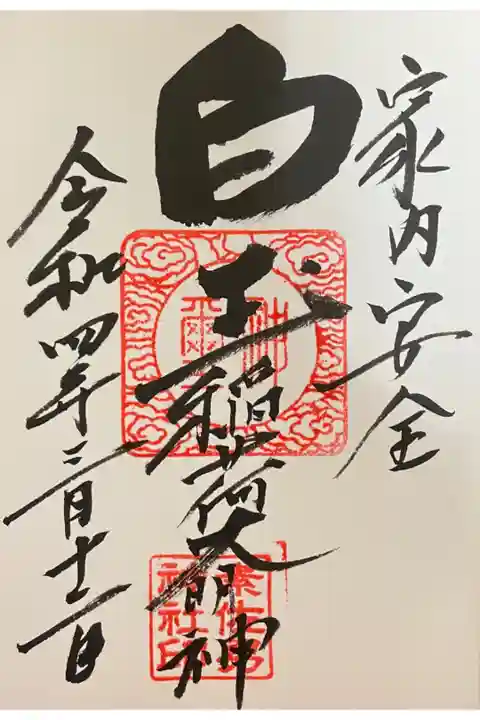 家内安全
白玉稲荷大明神
令和四年二月十二日
神璽
神社印